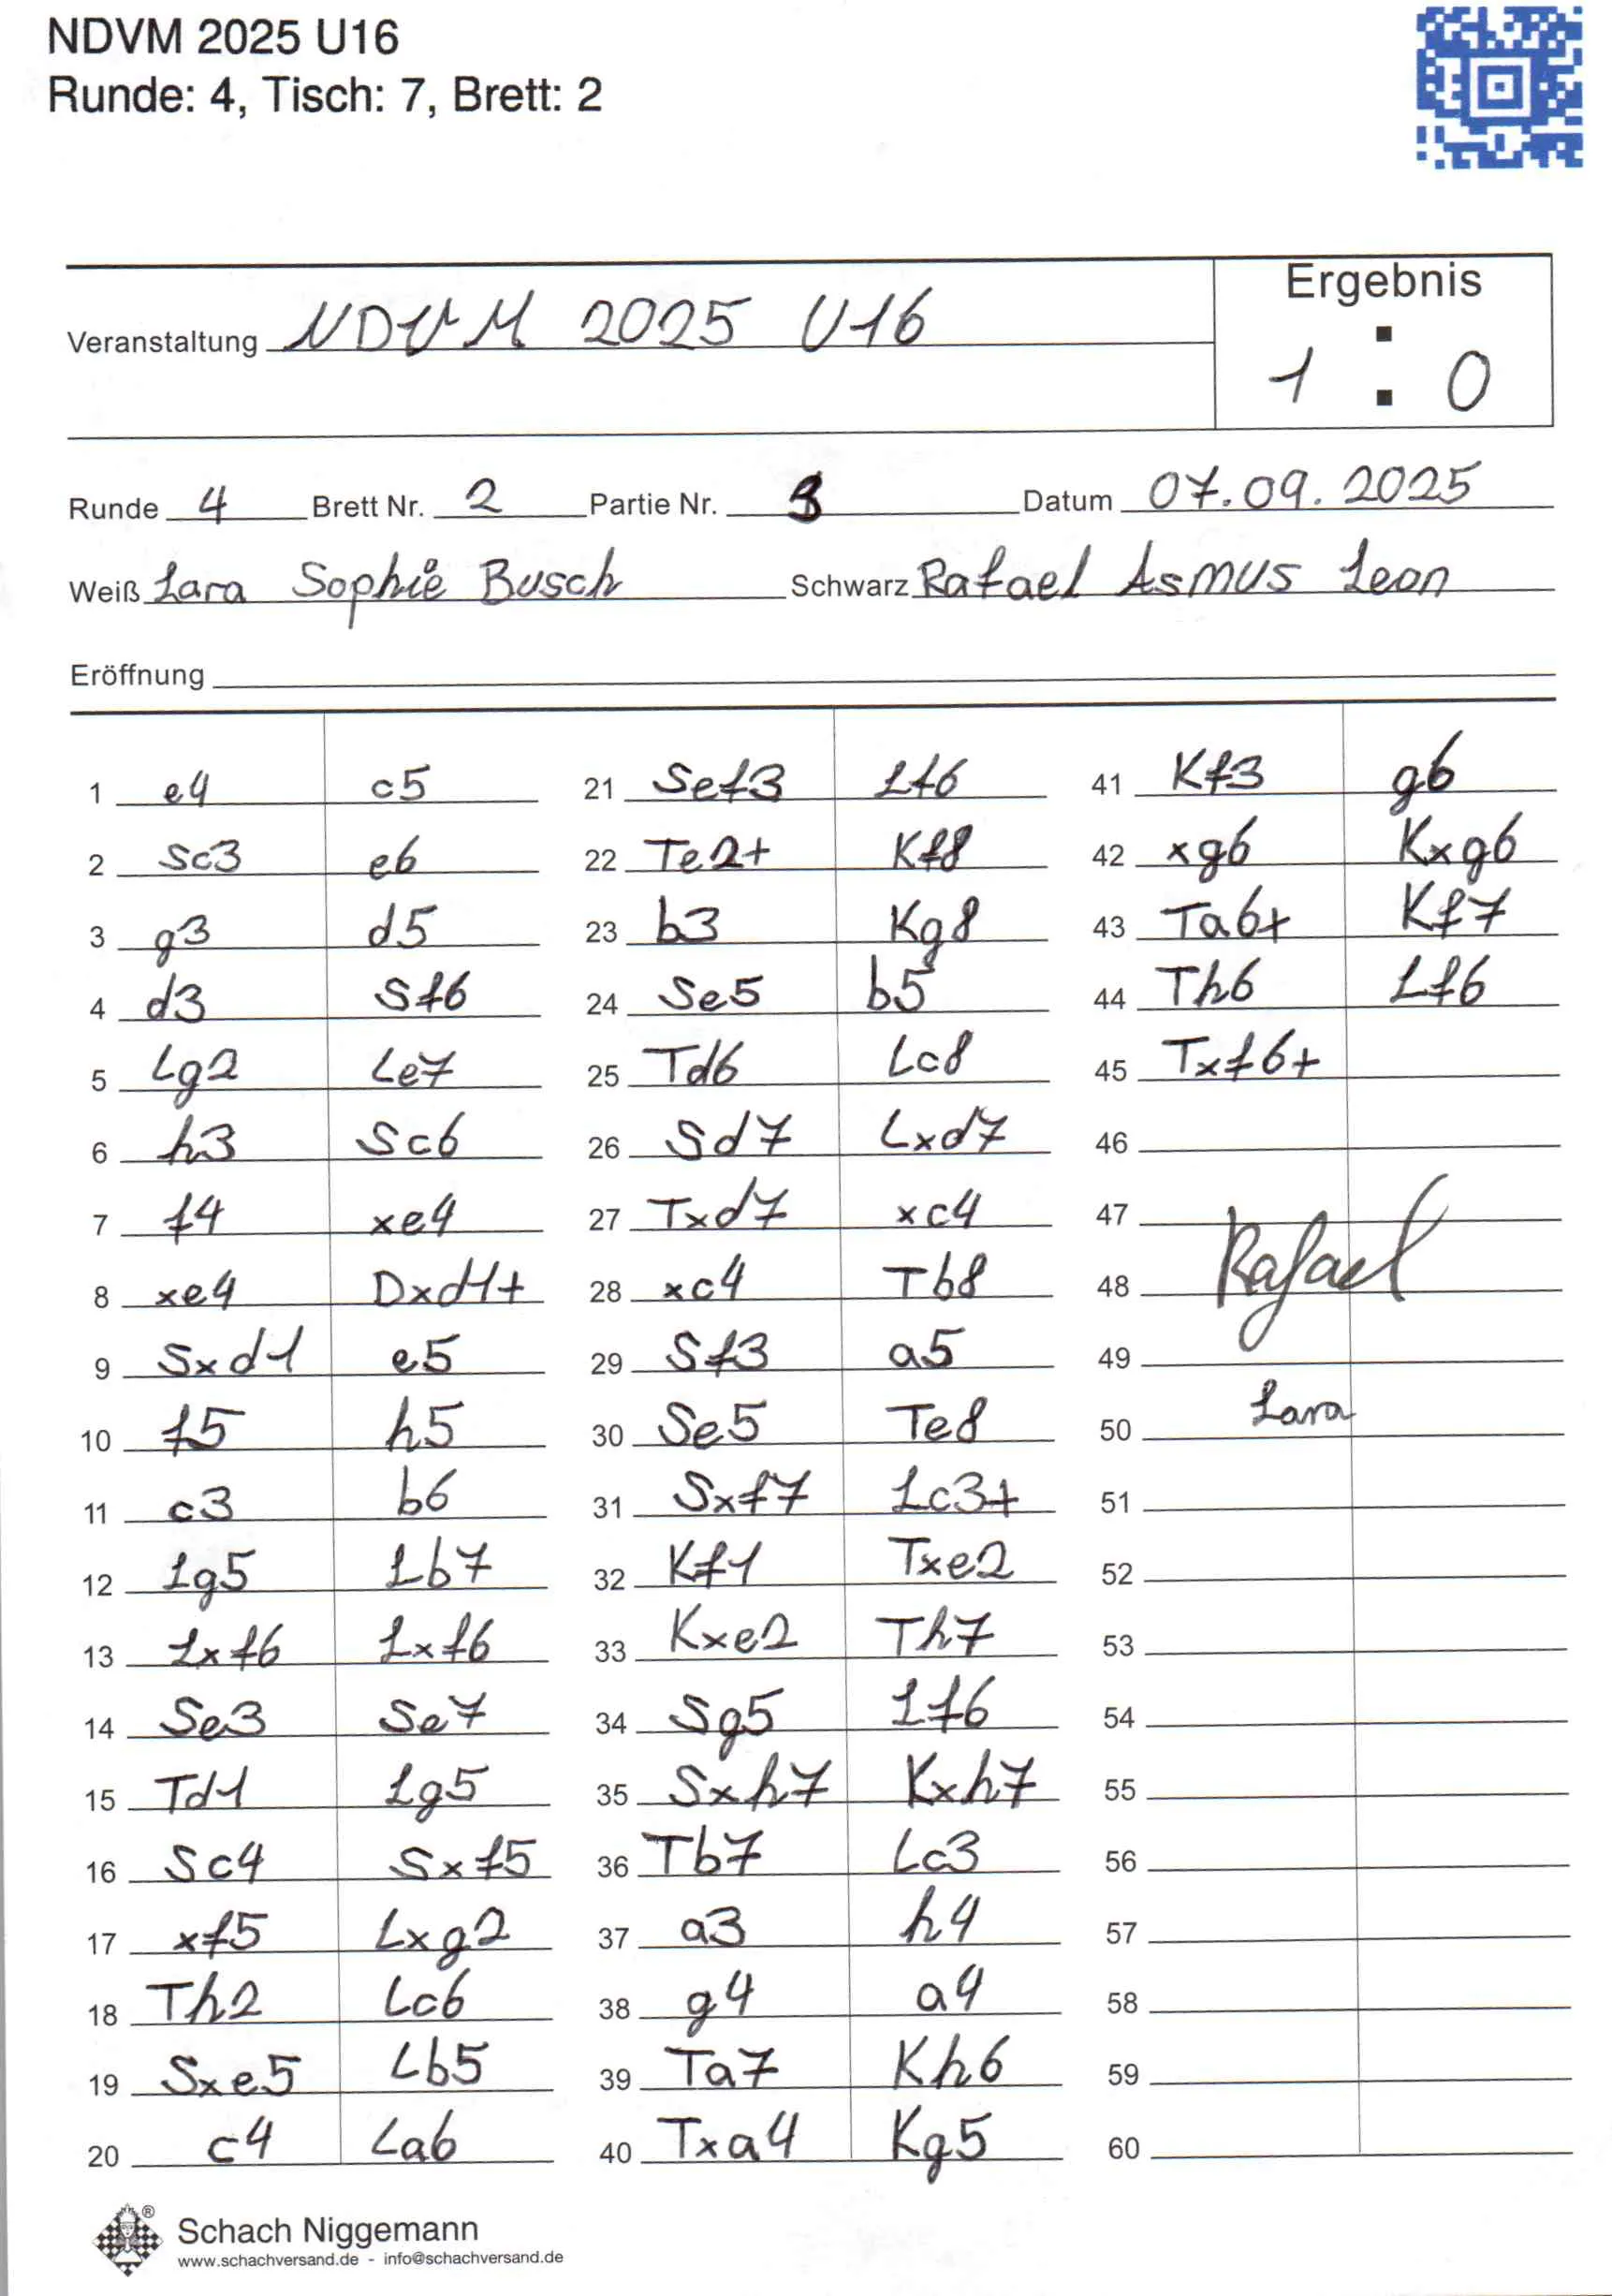 NDVM 2025 U16
Runde: 4, Tisch: 7, Brett: 2
Ergebnis
Veranstaltung NDVM 2025 U16
1 : 0
Runde 4 Brett Nr. 2 Partie Nr. 3 Datum 07.09.2025
Weiß Lara Sophie Busch Schwarz Rafael Asmus Leon
Eröffnung
1 e4 c5
2 Sc3 e6
3 g3 d5
4 d3 Sf6
5 Lg2 Le7
6 h3 Sc6
7 f4 xe4
8 xe4 Dxd1+
9 Sxd1 e5
10 f5 h5
11 c3 b6
12 Lg5 Lb7
13 Lxf6 Lxf6
14 Se3 Se7
15 Td1 Lg5
16 Sc4 Sxf5
17 xf5 Lxg2
18 Th2 Lc6
19 Sxe5 Lb5
20 c4 La6
21 Sef3 Lf6
22 Te2+ Kf8
23 b3 Kg8
24 Se5 b5
25 Td6 Lc8
26 Sd7 Lxd7
27 Txd7 xc4
28 xc4 Tb8
29 Sf3 a5
30 Se5 Te8
31 Sxf7 Lc3+
32 Kf1 Txe2
33 Kxe2 Th7
34 Sg5 Lf6
35 Sxh7 Kxh7
36 Tb7 Lc3
37 a3 h4
38 g4 a4
39 Ta7 Kh6
40 Txa4 Kg5
41 Kf3 g6
42 xg6 Kxg6
43 Ta6+ Kf7
44 Th6 Lf6
45 Txf6+
46
47
48 Rafael
49
50 Lara
51
52
53
54
55
56
57
58
59
60
® Schach Niggemann
www.schachversand.de - info@schachversand.de